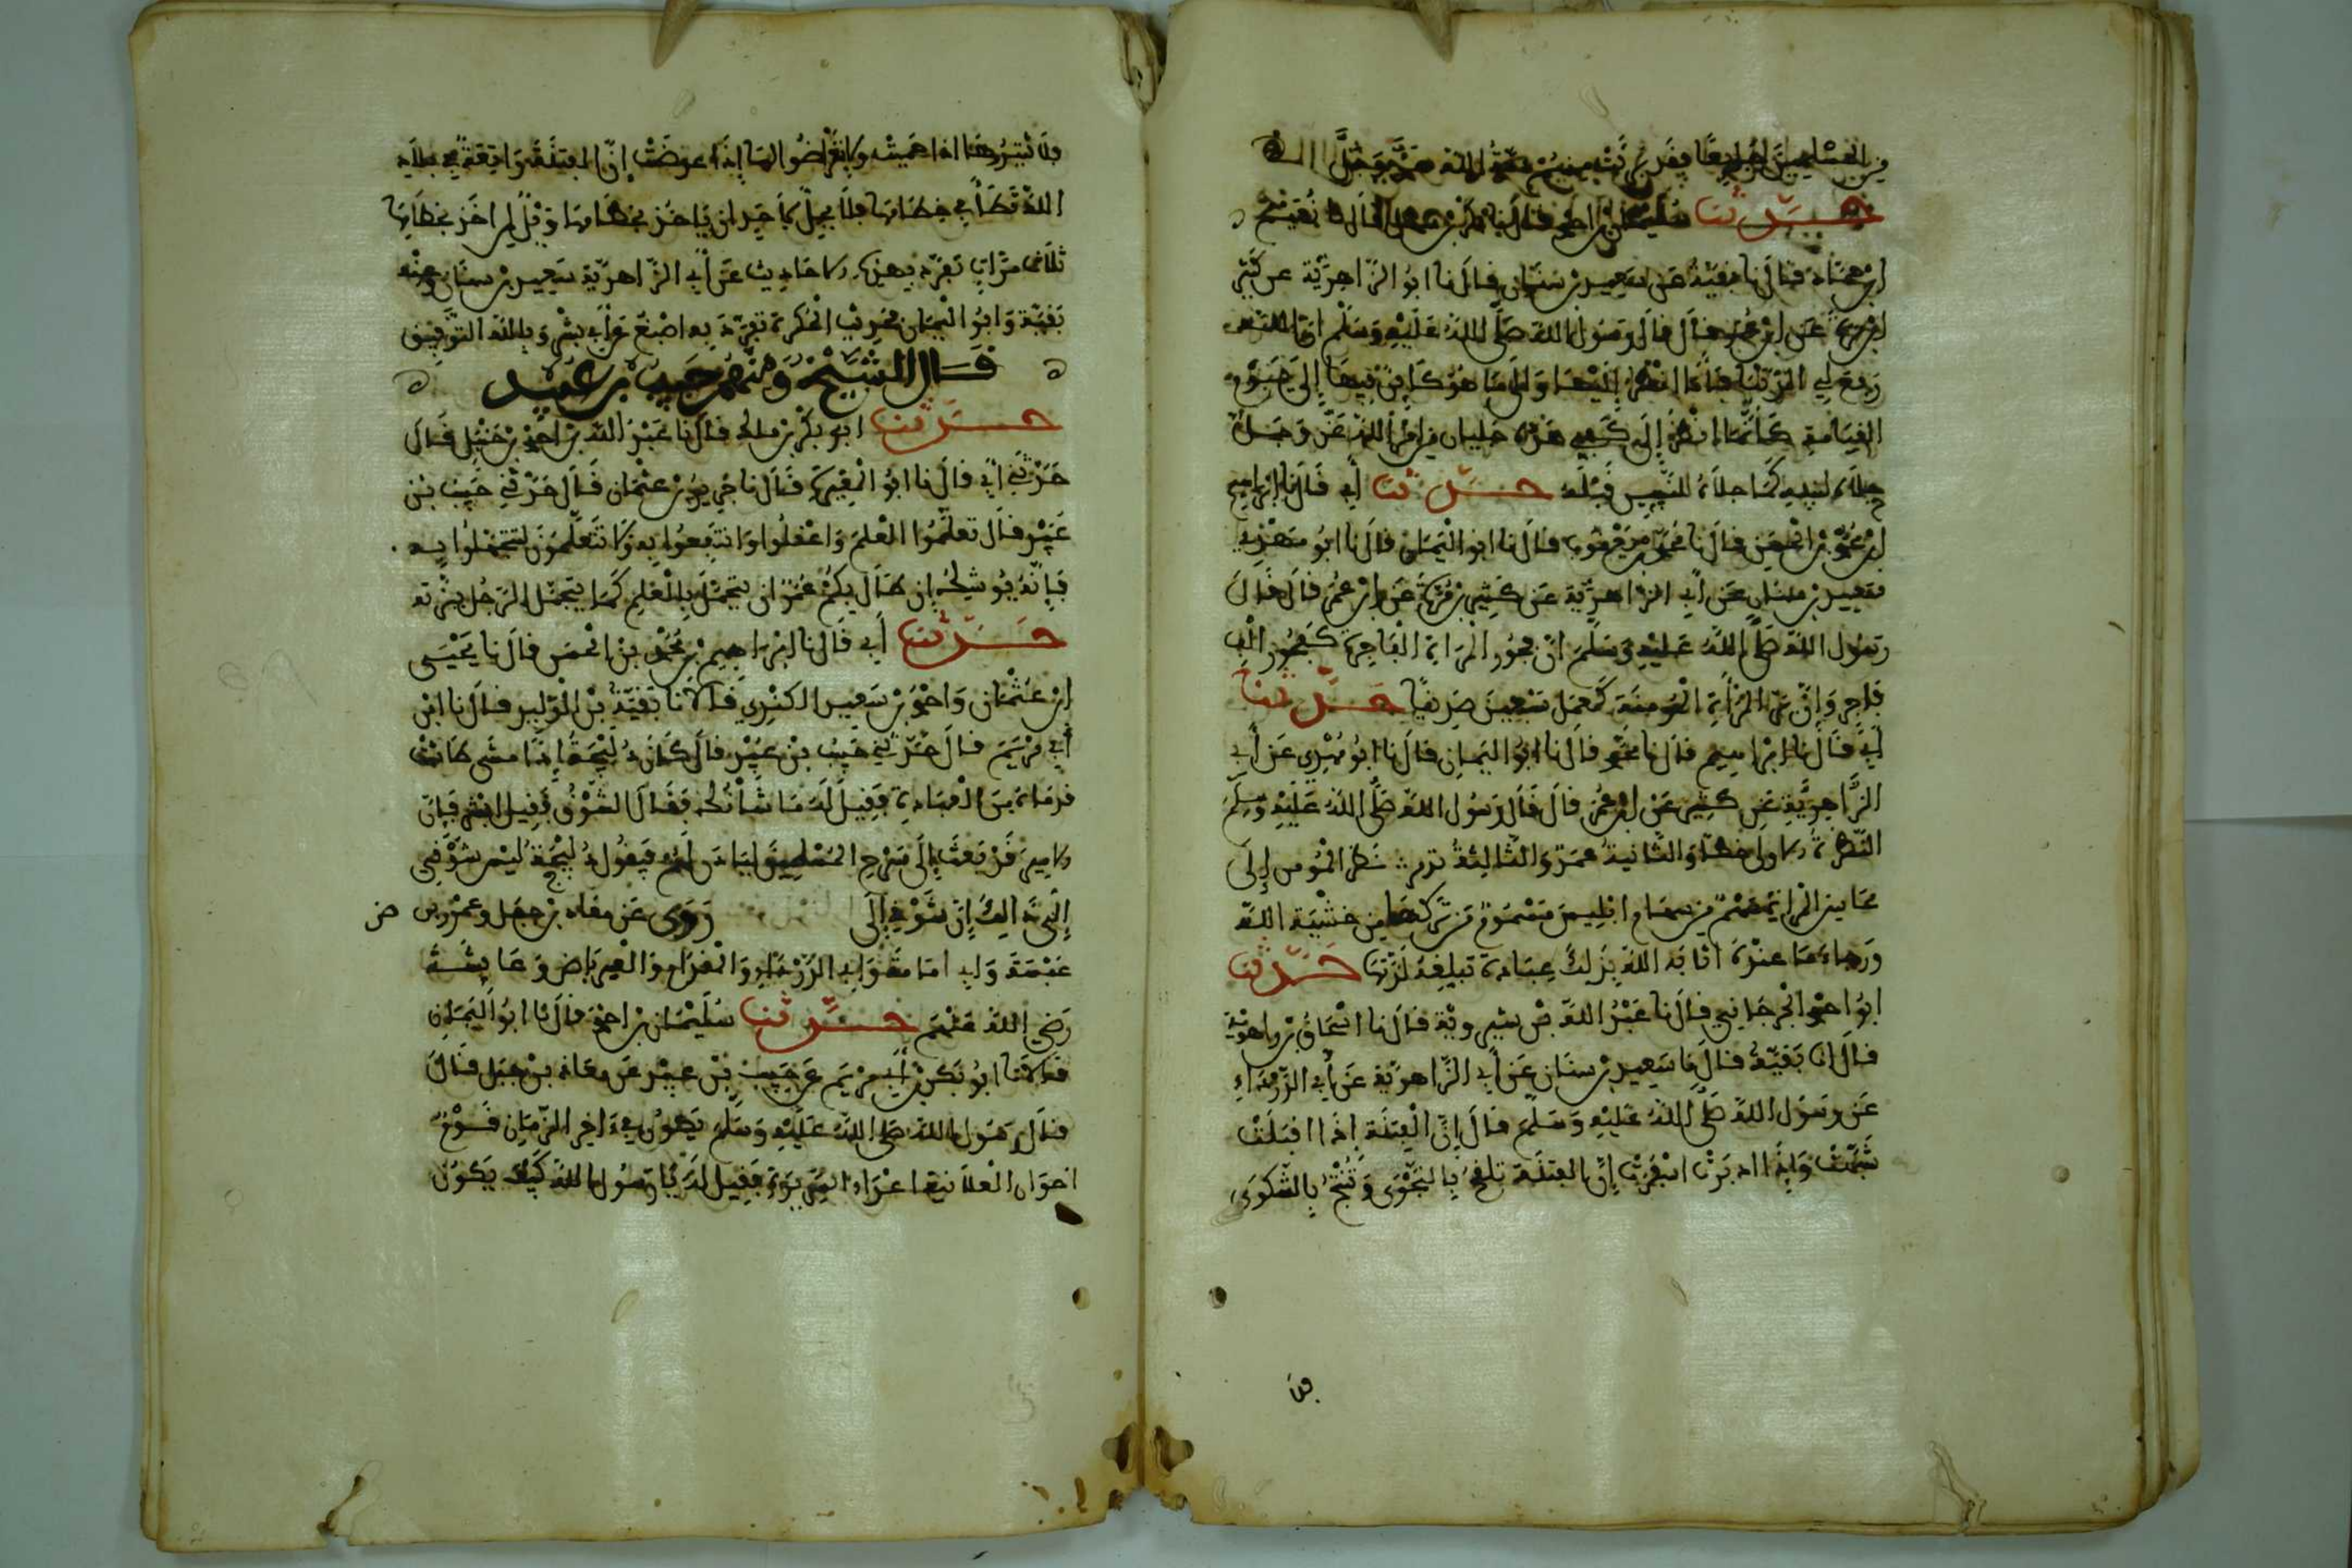 من المسلمين جميعا فقد برئت منهم ذمة الله عز وجل
حدثنا سليمان بن احمد قال نا بكر بن سهل قال نا نعيم
ابن حماد قال نا بقية عن سعيد بن سنان قال نا ابو الزاهرية عن كثير
ابن مرة عن ابن عمر قال قال رسول الله صلى الله عليه وسلم ان الله
رفع لي الدنيا فانا انظر اليها والى ما هو كائن فيها إلى يوم
القيامة كأنما انظر إلى كفي هذه جليان من امر الله عز وجل
جلاه لنبيه كما جلاه للنبيين قبله حدثنا أبي قال نا ابراهيم
ابن محمد بن الحسن قال نا محمد بن يعقوب قال نا ابو اليمان قال نا ابو مهدي
سعيد بن سنان عن أبي الزاهرية عن كثير بن مرة عن ابن عمر قال قال
رسول الله صلى الله عليه وسلم ان فجور المرأة الفاجرة كفجور الف
فاجر وإن بر المرأة المومنة كعمل سبعين صديقا حدثنا
أبي قال نا ابراهيم قال نا محمد قال نا ابو اليمان قال نا ابو مهدي عن أبي
الزاهرية عن كثير عن ابن عمر قال قال رسول الله صلى الله عليه وسلم
النظرة الاولى خطأ والثانية عمد والثالثة تدمر نظر المومن إلى
محاسن المرأة سهم من سهام ابليس مسموم من تركها من خشية الله
ورجاء ما عنده اثابه الله بذلك عبادة تبلغه لذتها حدثنا
ابو احمد الجرجاني قال نا عبد الله بن شيرويه قال نا اسحاق بن راهويه
قال انا بقية قال نا سعيد بن سنان عن أبي الزاهرية عن أبي الدرداء
عن رسول الله صلى الله عليه وسلم قال إن الفتنة إذا اقبلت
شبهت وإذا ادبرت اسفرت إن الفتنة تلقح بالنجوى وتنتج بالشكوى
فلا
فلا تثيروها اذا حميت ولا تعرضوا لها إذا عرضت إن الفتنة واقعة في بلاد
الله تطأ في خطامها فلا يحل لاحد ان ياخذ بخطامها ويل لمن اخذ بخطامها
ثلاث مرات تفرد بهذه الاحاديث عن أبي الزاهرية سعيد بن سنان وعنه
بقية وابو اليمان وحديث الحكرة تفرد به اصبغ عن أبي بشر وبالله التوفيق
قال الشيخ ومنهم حبيب بن عبيد
حدثنا ابو بكر بن مالك قال نا عبد الله بن احمد بن حنبل قال
حدثني أبي قال نا ابو المغيرة قال نا جرير بن عثمان قال حدثني حبيب بن
عبيد قال تعلموا العلم واعقلوا وانتفعوا به ولا تتعلمون لتتجملوا به
فإنه يوشك إن طال بكم عمر ان يتجمل بالعلم كما يتجمل الرجل ببزته
حدثنا أبي قال نا ابراهيم بن محمد بن الحسن قال نا يحيى
ابن عثمان واحمد بن سعيد الكندي قالا نا بقية بن الوليد قال نا ابن
أبي مريم قال حدثني حبيب بن عبيد قال
فقيل له ما شأنك فقال الشوق فقيل ابشر فإن
الامير قد بعث إلى سرح المسلمين
إليه إن شوقي إلى وروى عن معاذ بن جبل وعمرو بن
عبسة وابي امامة وابي الدرداء والمقدام والعرباض وعائشة
رضي الله عنهم حدثنا سليمان بن احمد قال نا ابو اليمان
ابو بكر بن أبي مريم عن حبيب بن عبيد عن معاذ بن جبل قال
قال رسول الله صلى الله عليه وسلم يكون في ءاخر الزمان قوم
اخوان العلانية اعداء السريرة فقيل له يا رسول الله كيف يكون